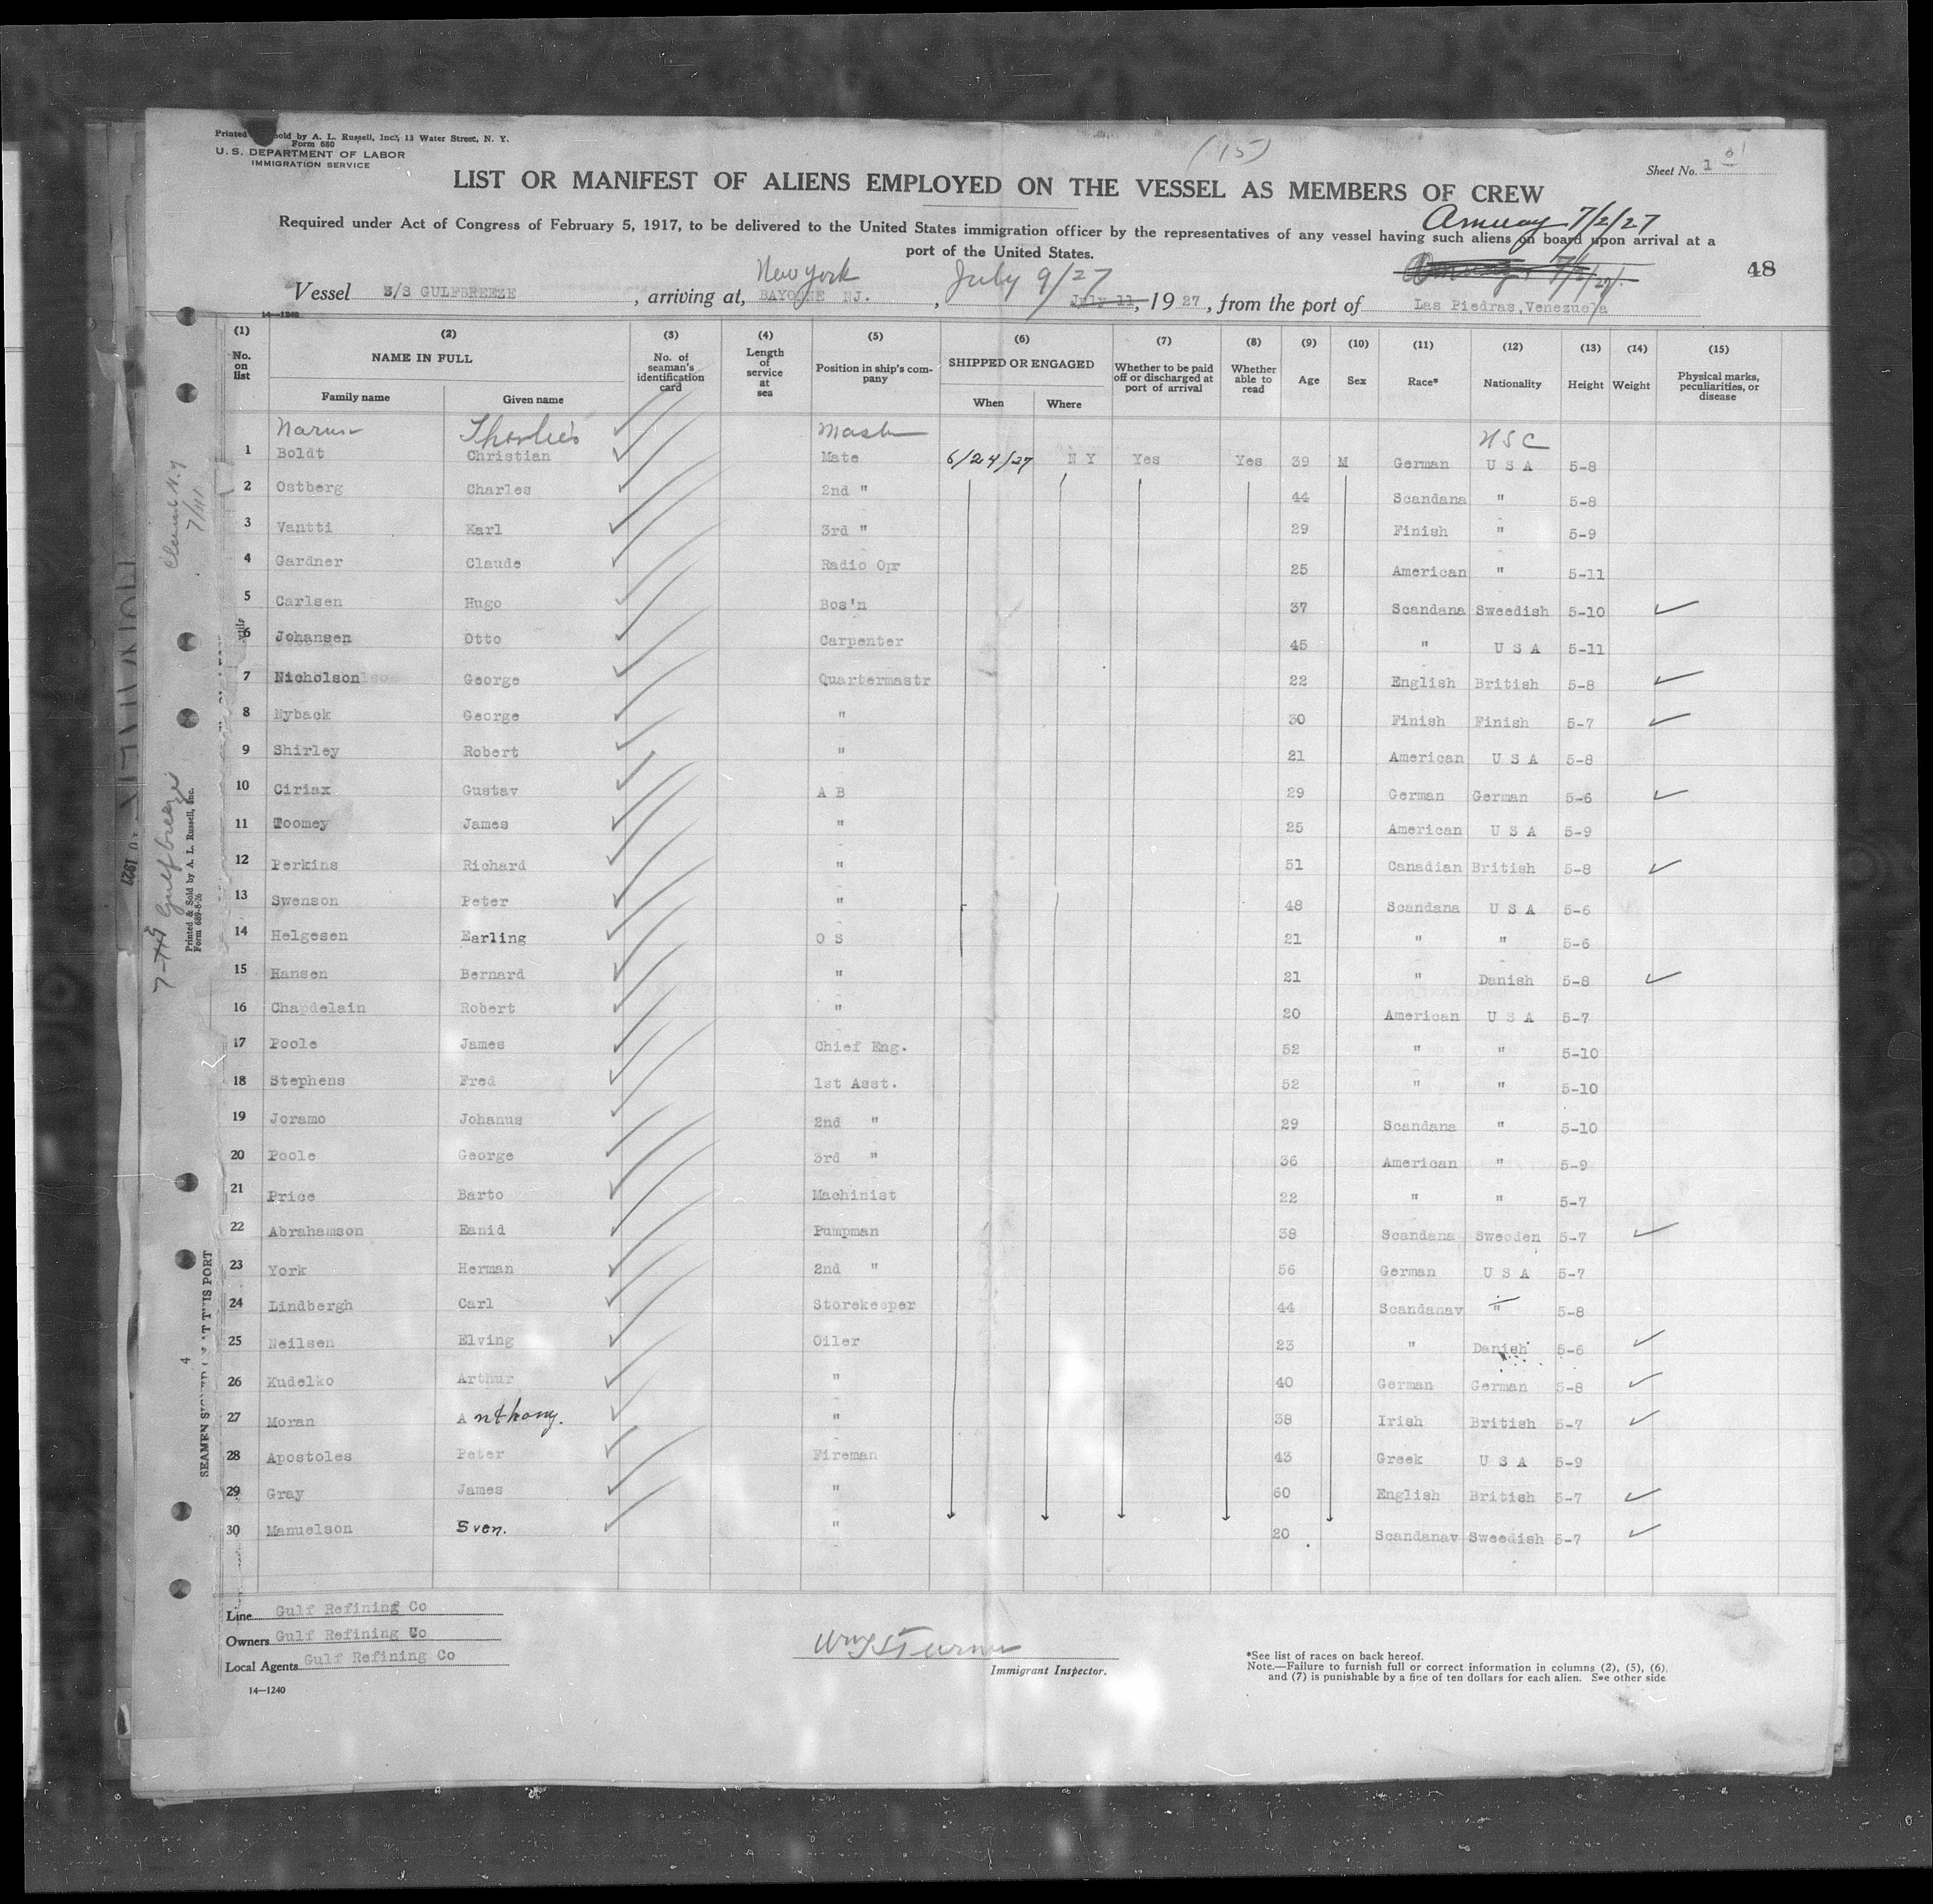 Printed sold by A. L. Russell, Inc., 13 Water Street, N. Y.
Form 680
U. S. DEPARTMENT OF LABOR
IMMIGRATION SERVICE
(15)
Sheet No. 1
LIST OR MANIFEST OF ALIENS EMPLOYED ON THE VESSEL AS MEMBERS OF CREW
Amuay 7/2/27
Required under Act of Congress of February 5, 1917, to be delivered to the United States immigration officer by the representatives of any vessel having such aliens on board upon arrival at a
port of the United States.
New York July 9/27
48
Vessel S/S GULFBREEZE, arriving at, BAYONNE NJ., July 11, 1927, from the port of Las Piedras, Venezuela
14—1240
(1) (2) (3) (4) (5) (6) (7) (8) (9) (10) (11) (12) (13) (14) (15)
No. on list NAME IN FULL Family name Given name No. of seaman's identification card Length of service at sea Position in ship's company SHIPPED OR ENGAGED When Where Whether to be paid off or discharged at port of arrival Whether able to read Age Sex Race* Nationality Height Weight Physical marks, peculiarities, or disease
Master USC
1 Boldt Christian Mate 6/24/27 N Y Yes Yes 39 M German U S A 5-8
2 Ostberg Charles 2nd " 44 Scandana " 5-8
3 Vantti Karl 3rd " 29 Finish " 5-9
4 Gardner Claude Radio Opr 25 American " 5-11
5 Carlsen Hugo Bos'n 37 Scandana Sweedish 5-10
6 Johansen Otto Carpenter 45 " U S A 5-11
7 Nicholson George Quartermastr 22 English British 5-8
8 Nyback George " 30 Finish Finish 5-7
9 Shirley Robert " 21 American U S A 5-8
10 Ciriax Gustav A B 29 German German 5-6
11 Toomey James " 25 American U S A 5-9
12 Perkins Richard " 51 Canadian British 5-8
13 Swenson Peter " 48 Scandana U S A 5-6
14 Helgesen Earling O S 21 " " 5-6
15 Hansen Bernard " 21 " Danish 5-8
16 Chapdelain Robert " 20 American U S A 5-7
17 Poole James Chief Eng. 52 " " 5-10
18 Stephens Fred 1st Asst. 52 " " 5-10
19 Joramo Johanus 2nd " 29 Scandana " 5-10
20 Poole George 3rd " 36 American " 5-9
21 Price Barto Machinist 22 " " 5-7
22 Abrahamson Eanid Pumpman 38 Scandana Sweeden 5-7
23 York Herman 2nd " 56 German U S A 5-7
24 Lindbergh Carl Storekeeper 44 Scandanav " 5-8
25 Neilsen Elving Oiler 23 " Danish 5-6
26 Kudelko Arthur " 40 German German 5-8
27 Moran Anthony. " 38 Irish British 5-7
28 Apostoles Peter Fireman 43 Greek U S A 5-9
29 Gray James " 60 English British 5-7
30 Manuelson Sven. " 20 Scandanav Sweedish 5-7
Line Gulf Refining Co
Owners Gulf Refining Co
Local Agents Gulf Refining Co
14—1240
Immigrant Inspector.
*See list of races on back hereof.
Note.—Failure to furnish full or correct information in columns (2), (5), (6), and (7) is punishable by a fine of ten dollars for each alien. See other side
Gulfbreeze
Printed & Sold by A. L. Russell, Inc.
Form 689-8-26
4